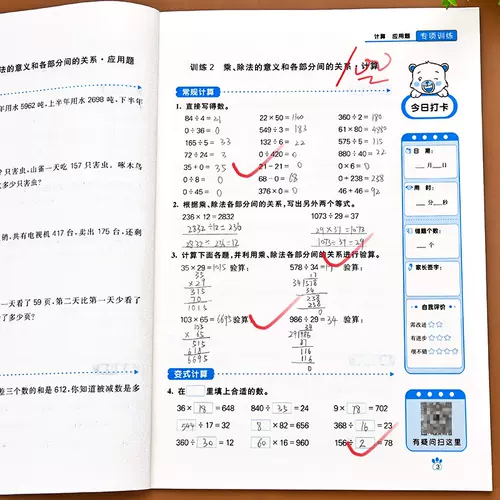 法的意义和各部分间的关系·应用题
年用水 5962 吨,上半年用水 2698 吨,下半年
只害虫,山雀一天吃 157 只害虫。啄木鸟
多少只害虫?
销,共有电视机 417 台,卖出 175 台,还剩
一天看了 59 页,第二天比第一天少看了
了多少页?
差三个数的和是 612,你知道被减数是多
计算 应用题 专项训练
训练2 乘、除法的意义和各部分间的关系·计算
100
常规计算
1. 直接写得数。
84÷4=21 22×50=1100 360÷2=180
0÷36=0 549÷3=183 61×80=4880
165÷5=33 132÷6=22 575÷5=115
72÷24=3 0÷420=0 880÷40=22
35+0=35 21-21=0 0×6=0
0÷8=0 68-0=68 0+238=238
0÷45=0 376×0=0 46+46=92
2. 根据乘、除法各部分间的关系,写出另外两个等式。
236×12=2832 1073÷29=37
2832÷12=236 29×37=1073
2832÷236=12 1073÷37=29
3. 计算下面各题,并利用乘、除法各部分间的关系进行验算。
35×29=1015 验算: 578÷34=17 验算:
103×65=6695 验算: 986÷29=34 验算:
变式计算
4. 在□里填上合适的数。
36×18=648 840÷35=24 9×78=702
544÷17=32 8×82=656 368÷16=23
360÷30=12 60×16=960 156÷2=78
今日打卡
日期:
月 日
用时:
分 秒
错题个数:
个
家长签字:
自我评价
需改进☆☆
有进步☆☆
很不错☆☆☆
有疑问扫这里
3